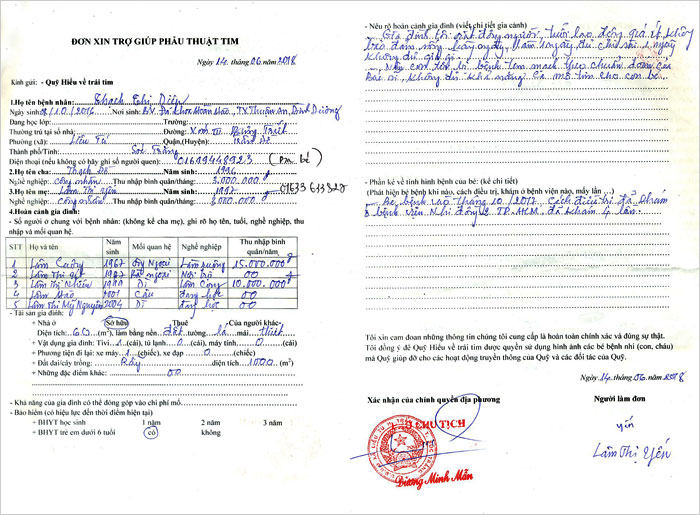 ĐƠN XIN TRỢ GIÚP PHẪU THUẬT TIM
Ngày 14 tháng 06 năm 2018
Kính gửi: - Quỹ Hiểu về trái tim
1.Họ tên bệnh nhân: Thạch Thị Diệp
Ngày sinh: 08/10/2016 Nơi sinh: BV Đa Khoa Hoàn Hảo, TX Thuận An, Bình Dương
Đang học lớp: Trường:
Thường trú tại số nhà: Đường: Xóm III
Phường (xã): Liêu Tú Quận,(Huyện) Trần Đề
Thành phố/Tỉnh: Sóc Trăng
Điện thoại (nếu không có hãy ghi số người quen): 01619448923 (
2.Họ tên cha: Thạch Năm sinh: 1996
Nghề nghiệp: công nhân Thu nhập bình quân/tháng: 3.000.000
3.Họ tên mẹ: Lâm Thị Yến Năm sinh: 1997
Nghề nghiệp: công nhân Thu nhập bình quân/tháng: 3.000.000
4.Hoàn cảnh gia đình:
- Số người ở chung với bệnh nhân: (không kể cha mẹ), ghi rõ họ tên, tuổi, nghề nghiệp, thu
nhập và mối quan hệ.
STT Họ và tên Năm sinh Mối quan hệ Nghề nghiệp Thu nhập bình quân/năm
1 Lâm Cường 1967 Ông Ngoại Làm ruộng 15.000.000đ
2 Lâm Thị 1967 Bà ngoại Nội trợ 00
3 Lâm Thị Nhiên Dì Làm Công 10.000.000đ
4 Lâm Hào 2001 Cậu đang học 00
5 Lâm Thị Mỹ Nguyên 2004 Dì đang học 00
- Tài sản gia đình:
+ Nhà ở Sở hữu Thuê Của người khác-
Diện tích: 60 (m²), làm bằng nền đất tường lá mái thiết
+ Vật dụng gia đình: Tivi 1 (cái), tủ lạnh 0 (cái), máy tính 0 (cái)
+ Phương tiện đi lại: xe máy 1 (chiếc), xe đạp 0 (chiếc)
+ Đất đai/cây trồng: Rẫy diện tích 1000 (m²)
+ Những đặc điểm khác: 00
- Khả năng của gia đình có thể đóng góp vào chi phí mổ
- Bảo hiểm (có hiệu lực đến thời điểm hiện tại)
+ BHYT học sinh 1 năm 2 năm 3 năm
+ BHYT trẻ em dưới 6 tuổi có không
- Nêu rõ hoàn cảnh gia đình (viết chi tiết gia cảnh)
Gia đình tôi quá đông người, tuổi lao động quá ít không
bảo đảm sống hàng ngày, làm 1 ngày đủ chi tiêu 1 ngày
không đủ
- Nay con tôi bị bệnh tim mạch theo chuẩn đoán của
Bác sĩ, không đủ khả năng để mổ tim cho con bé.
- Phần kể về tình hình bệnh của bé: (kể chi tiết)
(Phát hiện bệnh khi nào, cách điều trị, khám ở bệnh viện nào, mấy lần ...)
- Bé bệnh vào tháng 10/2017. Cách điều trị đã khám
ở bệnh viện Nhi đồng 2 TP.HCM, đã khám 4 lần.
Tôi xin cam đoan những thông tin chúng tôi cung cấp là hoàn toàn chính xác và đúng sự thật.
Tôi đồng ý để Quỹ Hiểu về trái tim được quyền sử dụng hình ảnh các bé bệnh nhi (con, cháu)
mà Quỹ giúp đỡ cho các hoạt động truyền thông của Quỹ và các đối tác của Quỹ.
Ngày 14 tháng 06 năm 2018
Xác nhận của chính quyền địa phương Người làm đơn
CHỦ TỊCH
Yến
Dương Minh Mẫn
Lâm Thị Yến